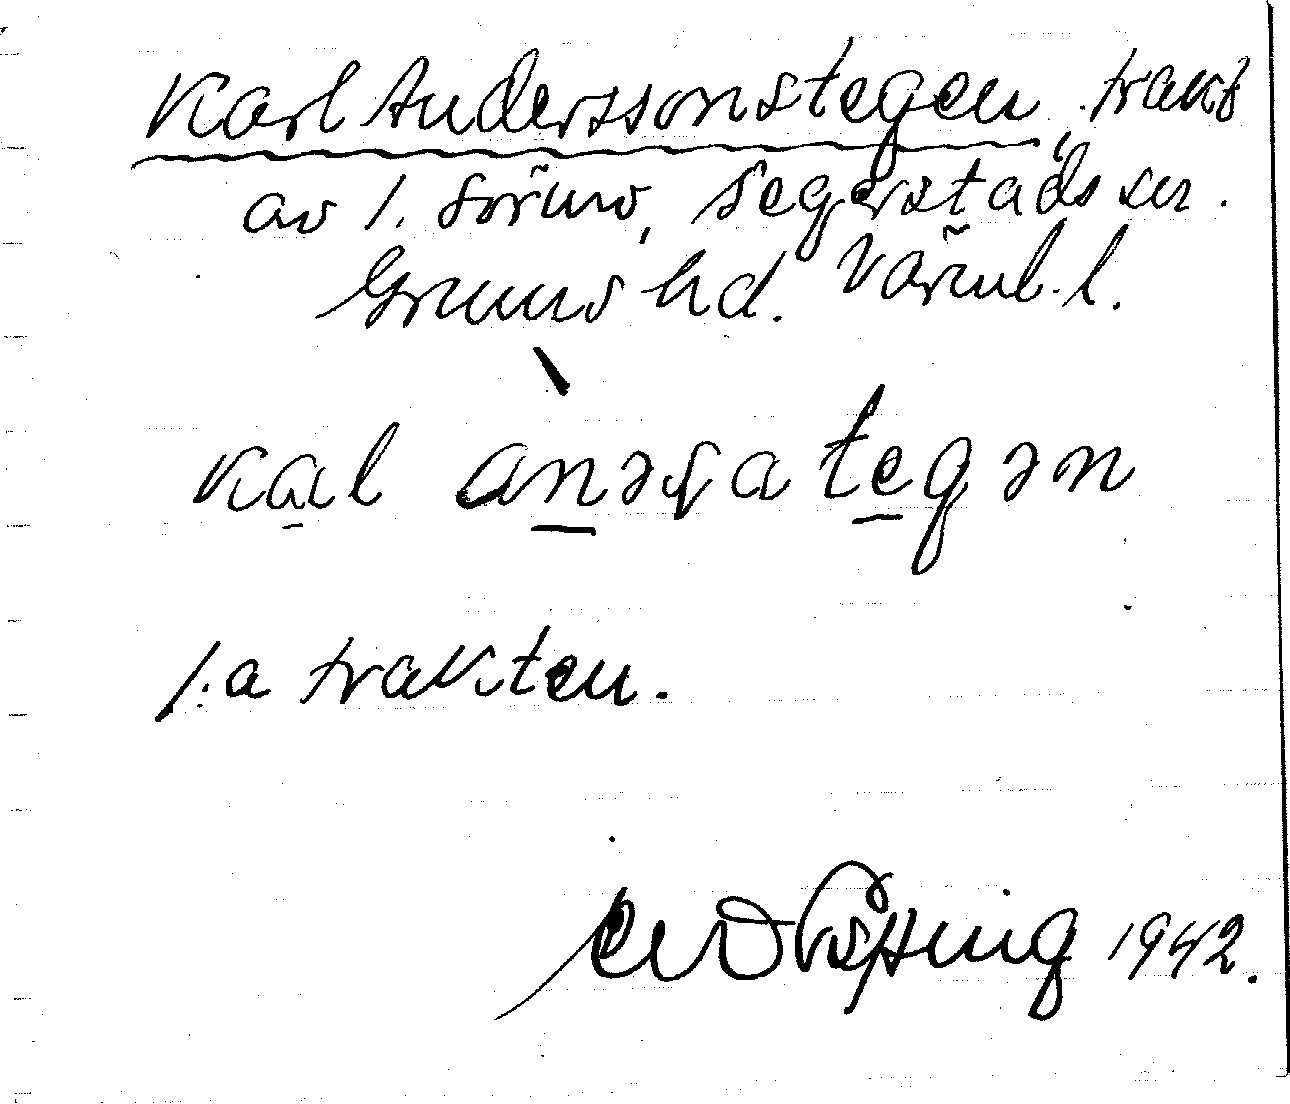 Karl Anderssonstegen, trakt
av l. Sörmo, Segerstads sn.
Grums hd. Värml. l.
kal anəʂategən
l. a trakten.
1942.